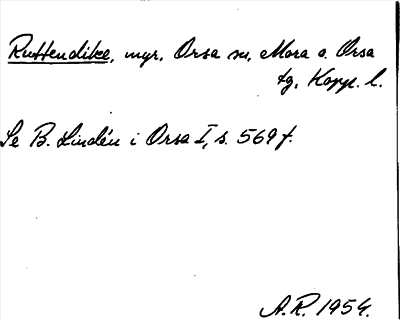 Ruttendike, myr, Orsa sn, Mora o. Orsa
tg, Kopp. l.
Se B. Lindén i Orsa I, s. 569 f.
A.R. 1954.